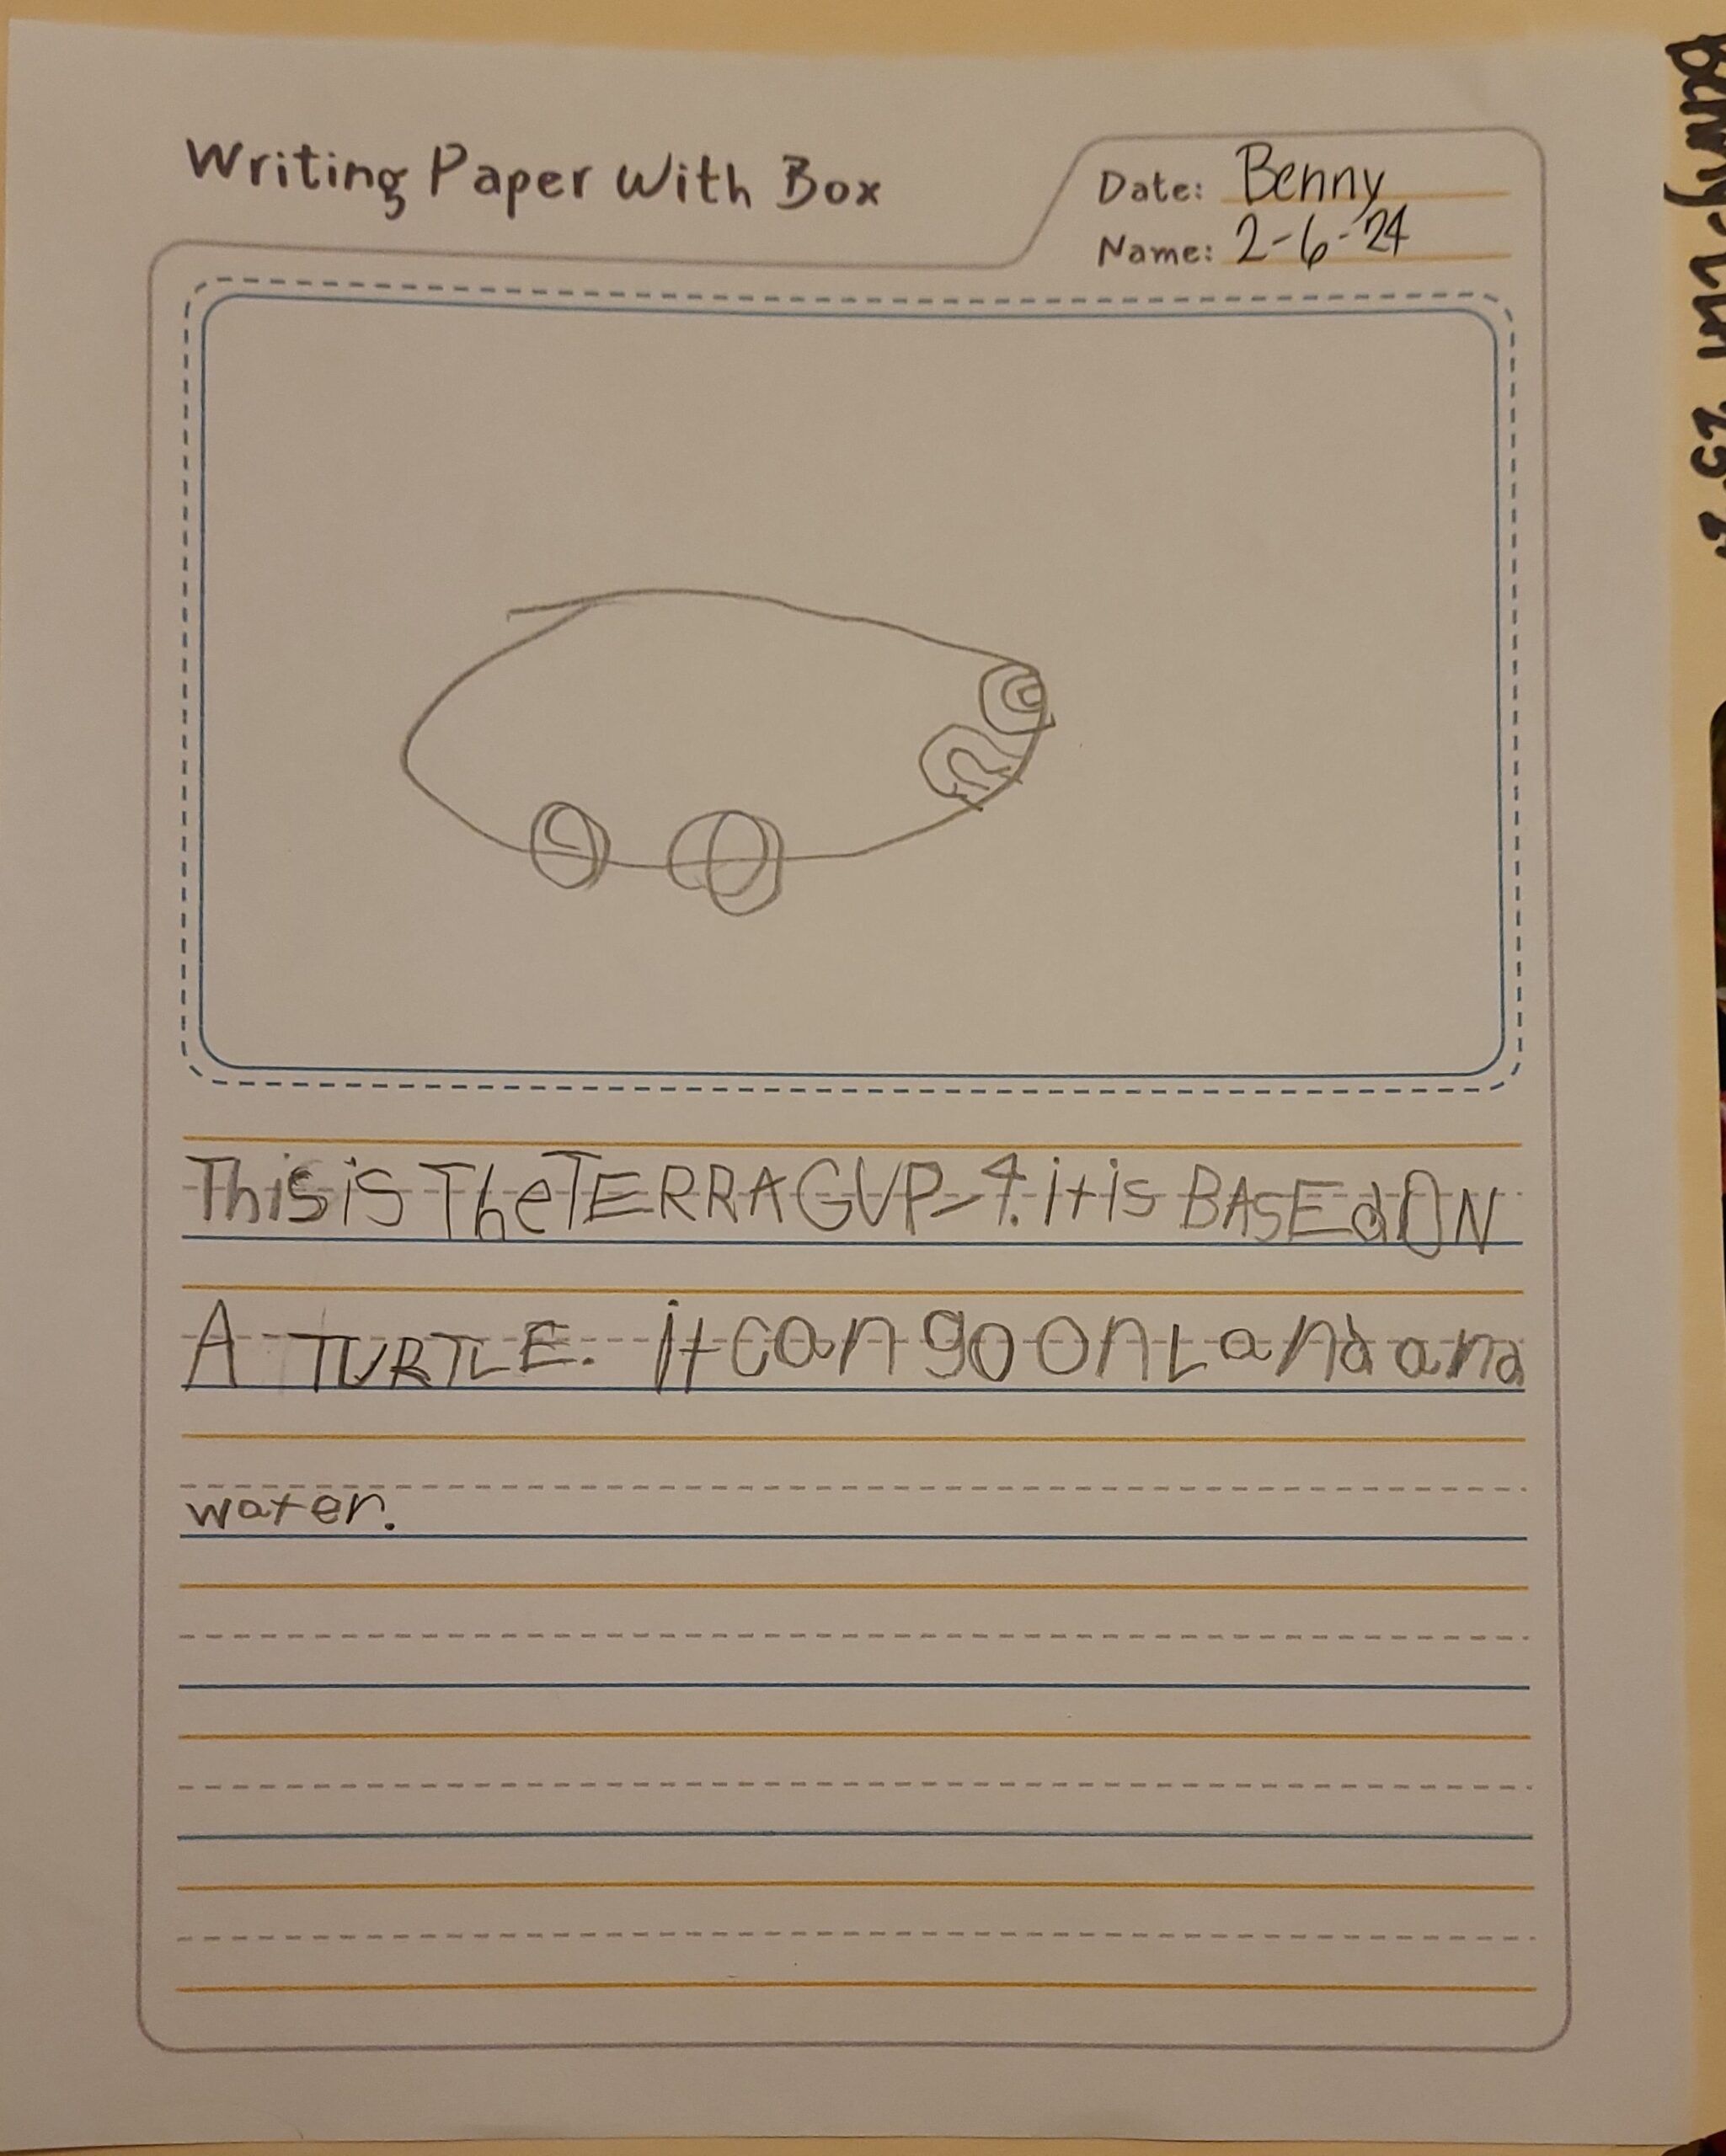 Writing Paper With Box
Date: Benny
Name: 2-6-24
This is The TERRAGUP-4. it is BASEd ON
A TURTLE. it can go on Land and
water.